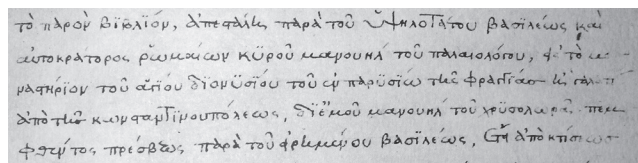 τὸ παρὸν βϊβλίον, ἀπεστάλη παρὰ τοῦ ὑψηλοτάτου βασϊλέως καὶ
αὐτοκράτορος ῥωμαίων κυροῦ μανουὴλ τοῦ παλαιολόγου, εἰς τὸ μο
ναστήριον τοῦ ἁγίου διονυσίου τοῦ ἐν παρυσίω τῆς φραγγίας ἢ γαλατί
ἀπὸ τῆς κωνσταντϊνουπόλεως, δϊ' ἐμοῦ μανουὴλ τοῦ χρυσολωρᾶ πεμ
φθέντος πρέσβεως παρὰ τοῦ εἰρημένου βασιλέως, ἔτει ἀπὸ κτίσεως